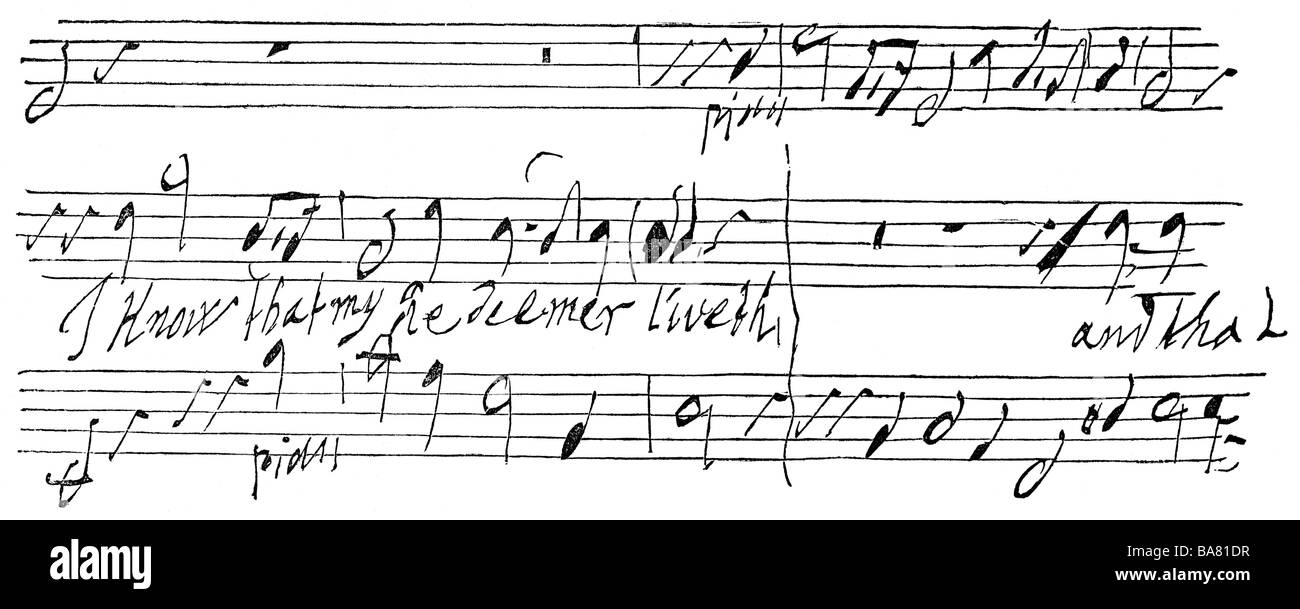 piano
I Know that my Redeemer liveth,
and that
piano
alamy
Image ID: BA81DR
www.alamy.com